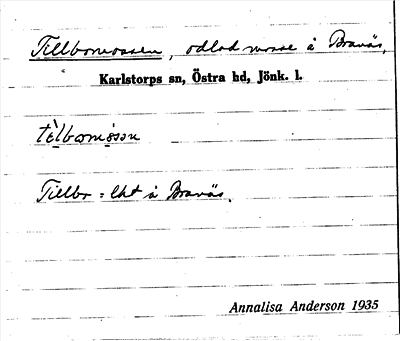 Tellbomossen, odlad mosse å Bravås,
Karlstorps sn, Östra hd, Jönk. l.
tèlbomòsən
Tellbo = lht å Bravås.
Annalisa Anderson 1935